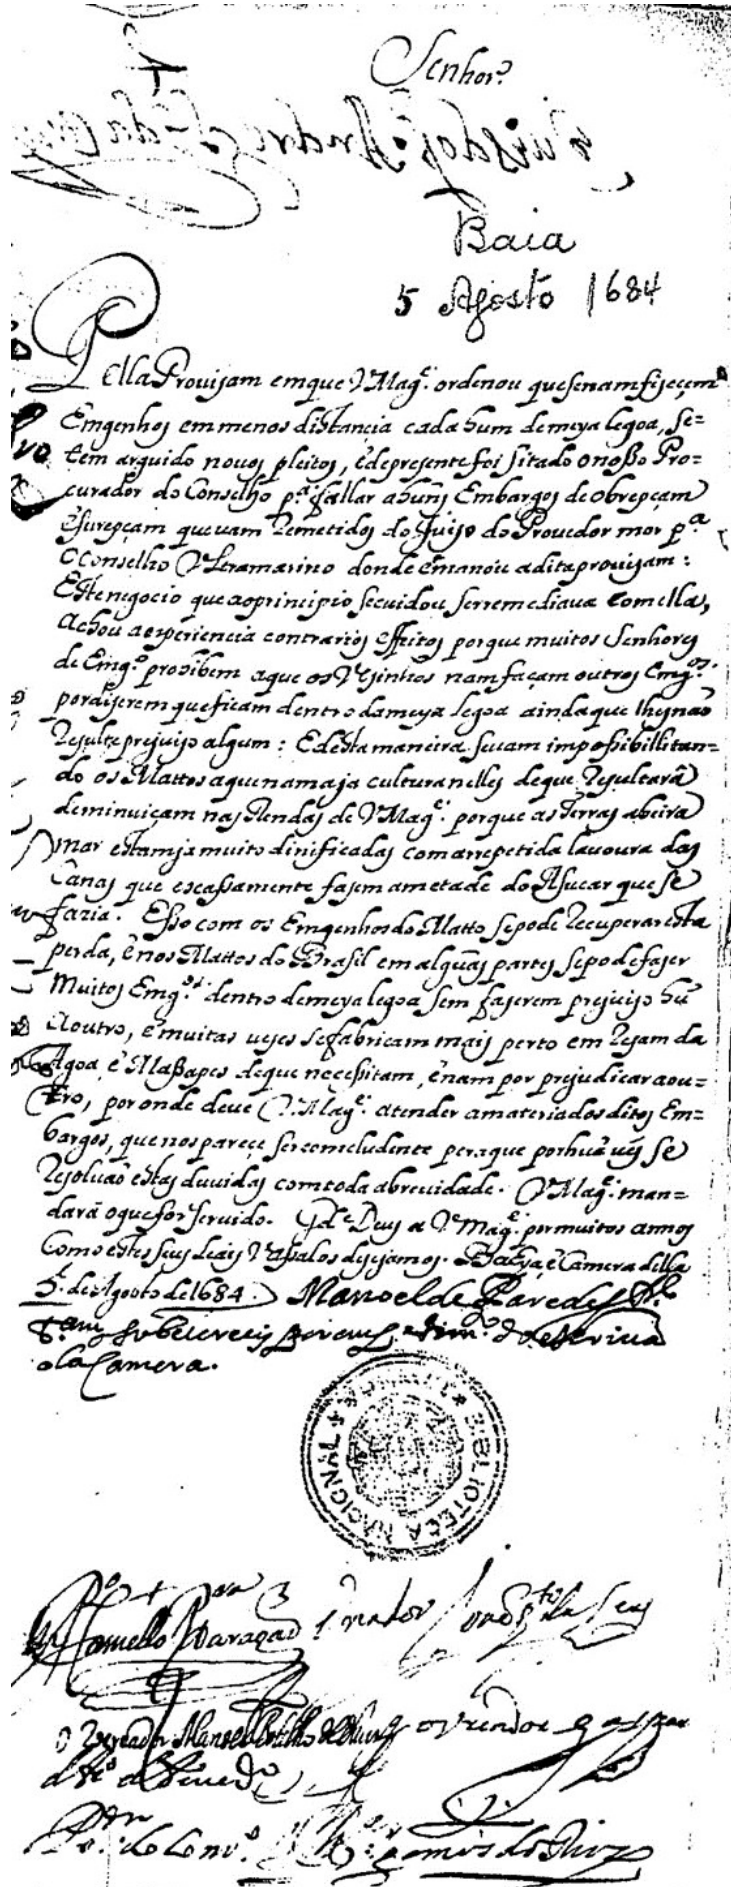 Senhor.
Baia
5 Agosto 1684
Pella Provisam em que V Magᵉ. ordenou que se nam fizeçem
Emgenhos em menos distancia cada hum de meya legoa, se=
tem arguido novos pleitos, e de presente foi sitado o nosso Pro=
curador do Conselho pᵃ. fallar a huns Embargos de obrepçam
e surepçam que vam Remetidos do Juizo do Provedor mor pᵃ
o Conselho Vltramarino donde emanou a dita provizam:
Este negocio que ao principio se cuidou se remediava com ella,
achou a esperiencia contrarios effeitos porque muitos Senhores
de Emgᵒ. prohibem a que os Vezinhos nam façam outros Emgᵒˢ.
por dizerem que ficam dentro da meya legoa ainda que lhes não
Rezulte prejuizo algum: E desta maneira se vam impossibillitan=
do os Mattos a que nam aja cultura nelles de que Rezultará
deminuiçam nas Rendas de V Magᵉ. porque as terras a beira
mar estam ja muito dinificadas com a repetida lavoura das
Canas que escassamente fazem ametade do Asucar que se
fazia. E sso com os Emgenhos do Matto se pode Recuperar esta
perda, e nos Mattos do Brasil em alguas partes se pode fazer
Muitos Emgᵒˢ. dentro de meya legoa sem fazerem prejuizo hũ
a outro, e muitas vezes se fabricam mais perto em Rezam da
Agoa e Massapes de que neçessitam, e nam por prejudicar a ou=
tro, por onde deve V Magᵉ. atender a materia dos ditos Em=
bargos, que nos pareçe ser comcludente pera que por hũa vez se
Rezolvaõ estas duvidas com toda a brevidade. V Magᵉ. man=
dará o que for servido. Gᵈᵉ Deus a V. Magᵉ. por muitos annos
Como estes seus leais Vassalos dezejamos. Bahya e Camera della
5. de Agosto de 1684. Manoel de
escriva
da Camera.
BIBLIOTECA NACIONAL
O Vereador Manoel Botelho de
o Vreador